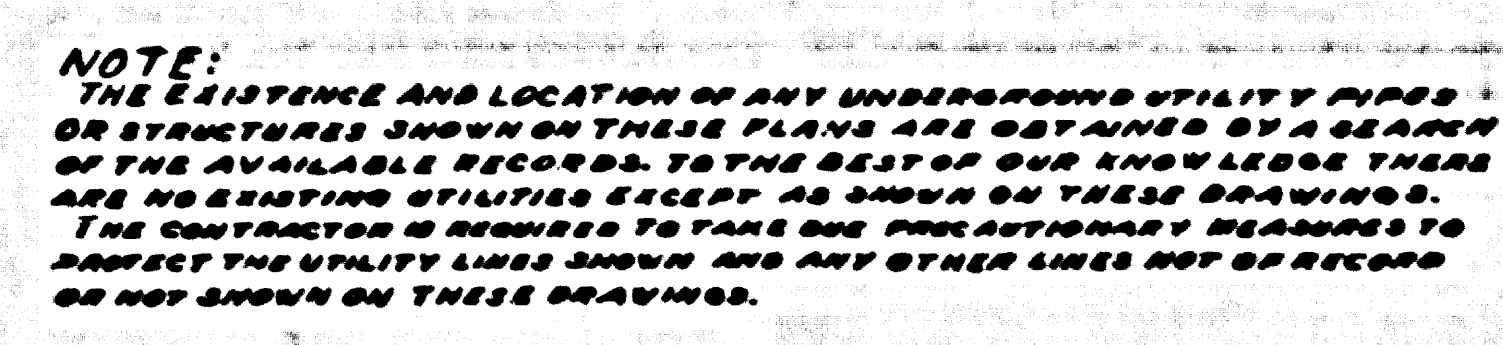 NOTE:
THE EXISTENCE AND LOCATION OF ANY UNDERGROUND UTILITY PIPES
OR STRUCTURES SHOWN ON THESE PLANS ARE OBTAINED BY A SEARCH
OF THE AVAILABLE RECORDS. TO THE BEST OF OUR KNOWLEDGE THERE
ARE NO EXISTING UTILITIES EXCEPT AS SHOWN ON THESE DRAWINGS.
THE CONTRACTOR IS REQUIRED TO TAKE DUE PRECAUTIONARY MEASURES TO
PROTECT THE UTILITY LINES SHOWN AND ANY OTHER LINES NOT OF RECORD
OR NOT SHOWN ON THESE DRAWINGS.